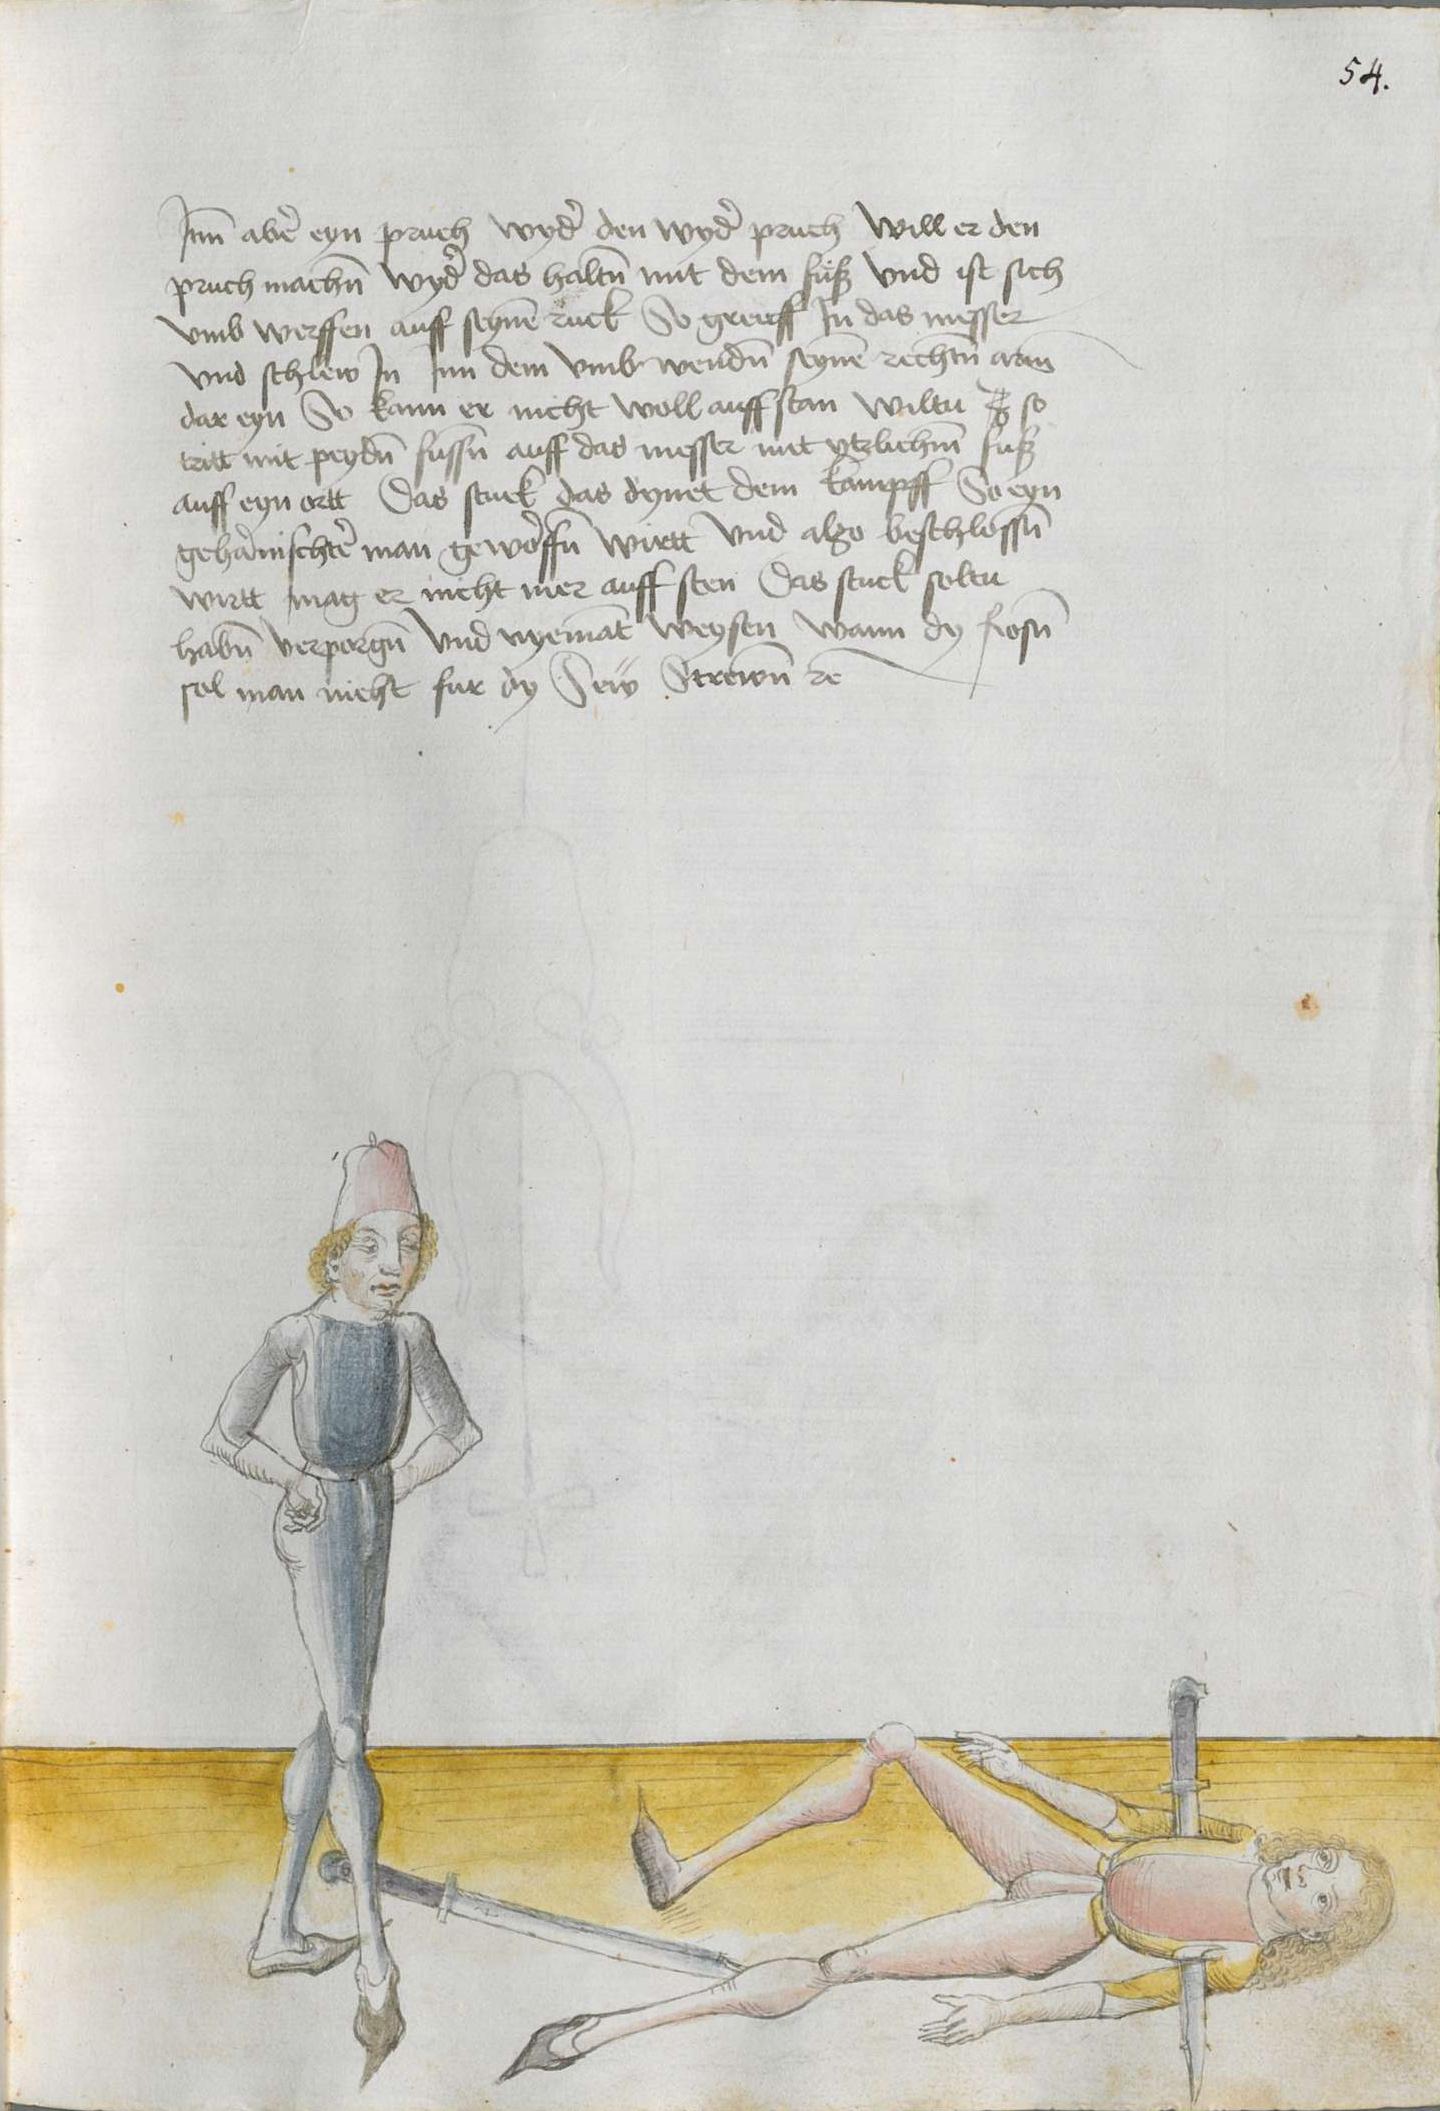 54.
Inn aber eyn pruch wyder den wyder pruch Will er den
pruch machñ wyder das haltñ mit dem fuß Vnd ist sich
vmb werffen auff seynẽ ruck So greiff In das messer
vnd schlew In Inn dem vmb wendñ seynẽ rechtñ arm
dar eyn So kann er nicht woll auff stan wiltu so
tritt mit peydñ fussñ auff das messer mit ytzlichm̃ fuß
auff eyn ortt Das stuck das dynet dem kampff So eyn
geharnischter man geworffñ wirtt Vnd also beschlossñ
wirtt mag er nicht mer auff sten Das stuck soltu
habñ verporgñ Vnd nyemãt weysen wann dy rosñ
sol man nicht fur dy Sew Strewñ